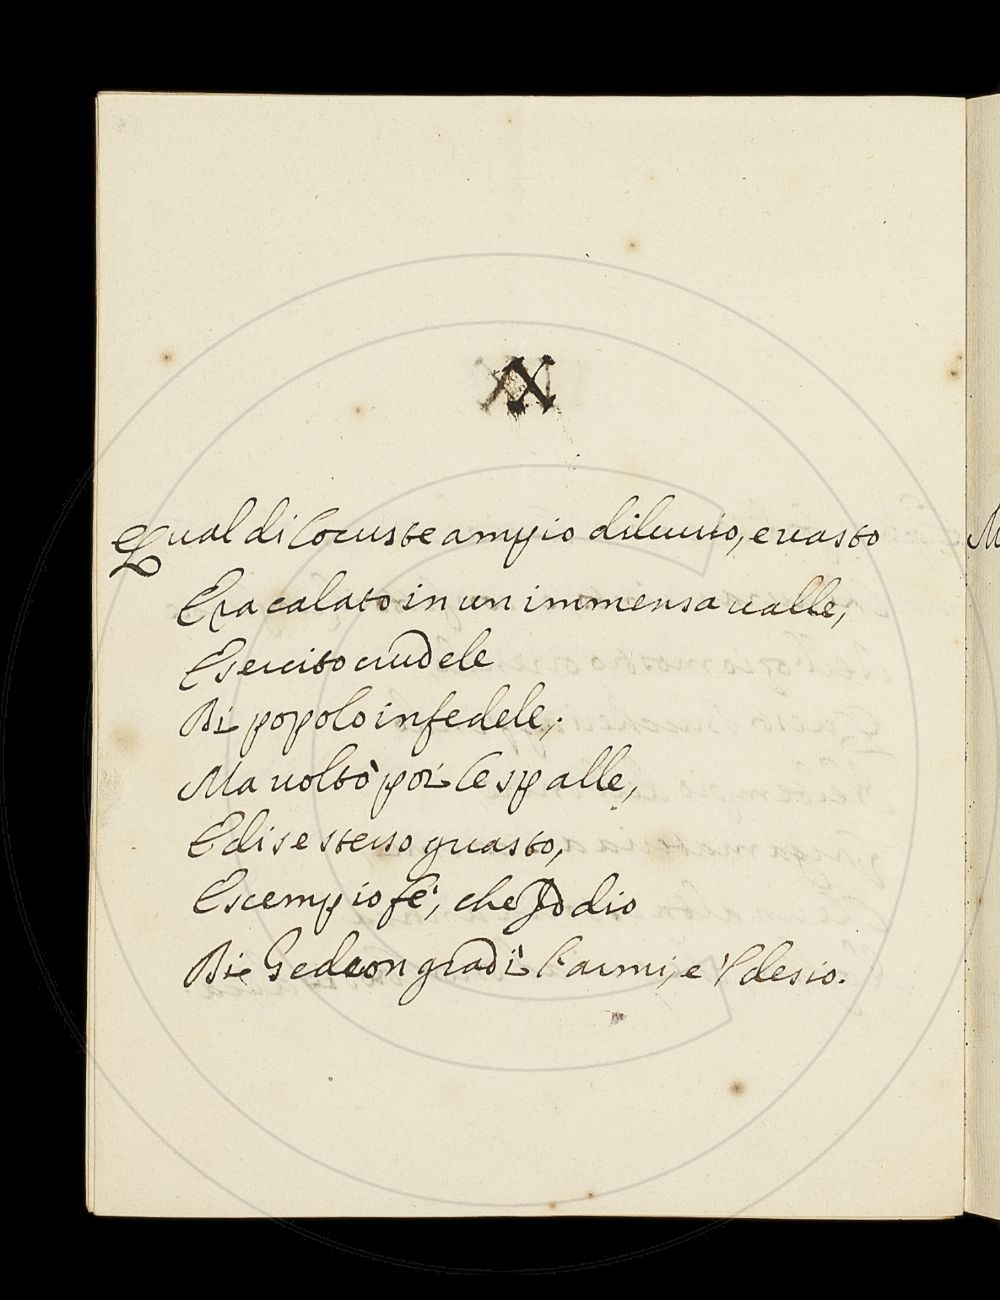 X
Qual di locuste ampio diluuio, e uasto
Era calato in un immensa ualle,
Esercito crudele
Di popolo infedele;
Ma uoltò poi le spalle,
E di se stesso guasto,
Escempio fè, che Iddio
Diè Gedeon gradì l'armi, e 'l desio.
M